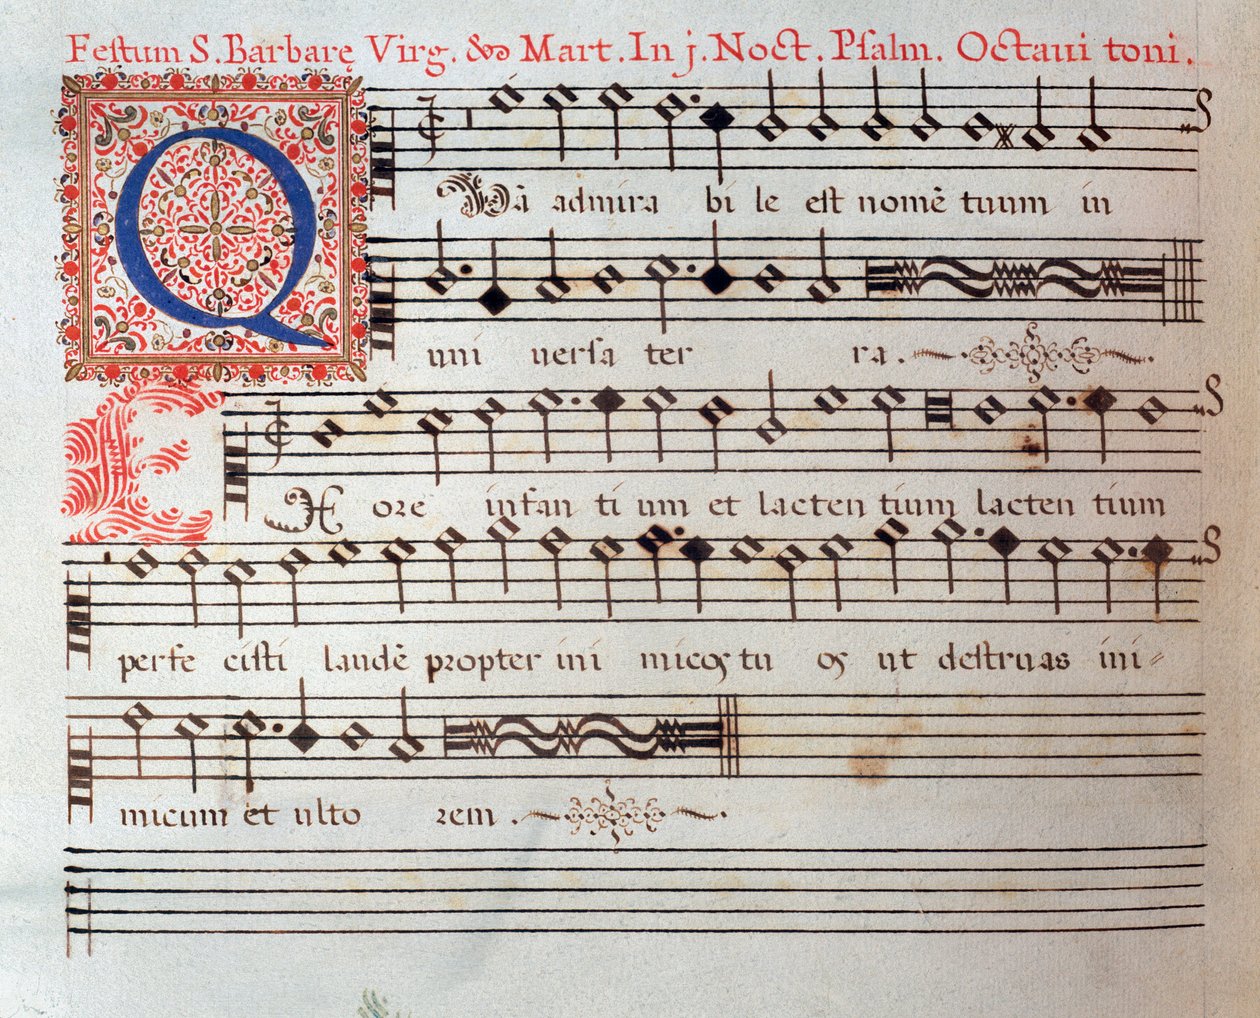 Festum S. Barbarę Virg. & Mart. In j. Noct. Psalm. Octaui toni.
QVā admira bi le est nomē tuum in
uni uersa ter ra.
EX ore infan ti um et lacten tium lacten tium
perfe cisti laudē propter ini micos tu os ut destruas ini-
micum et ulto rem.